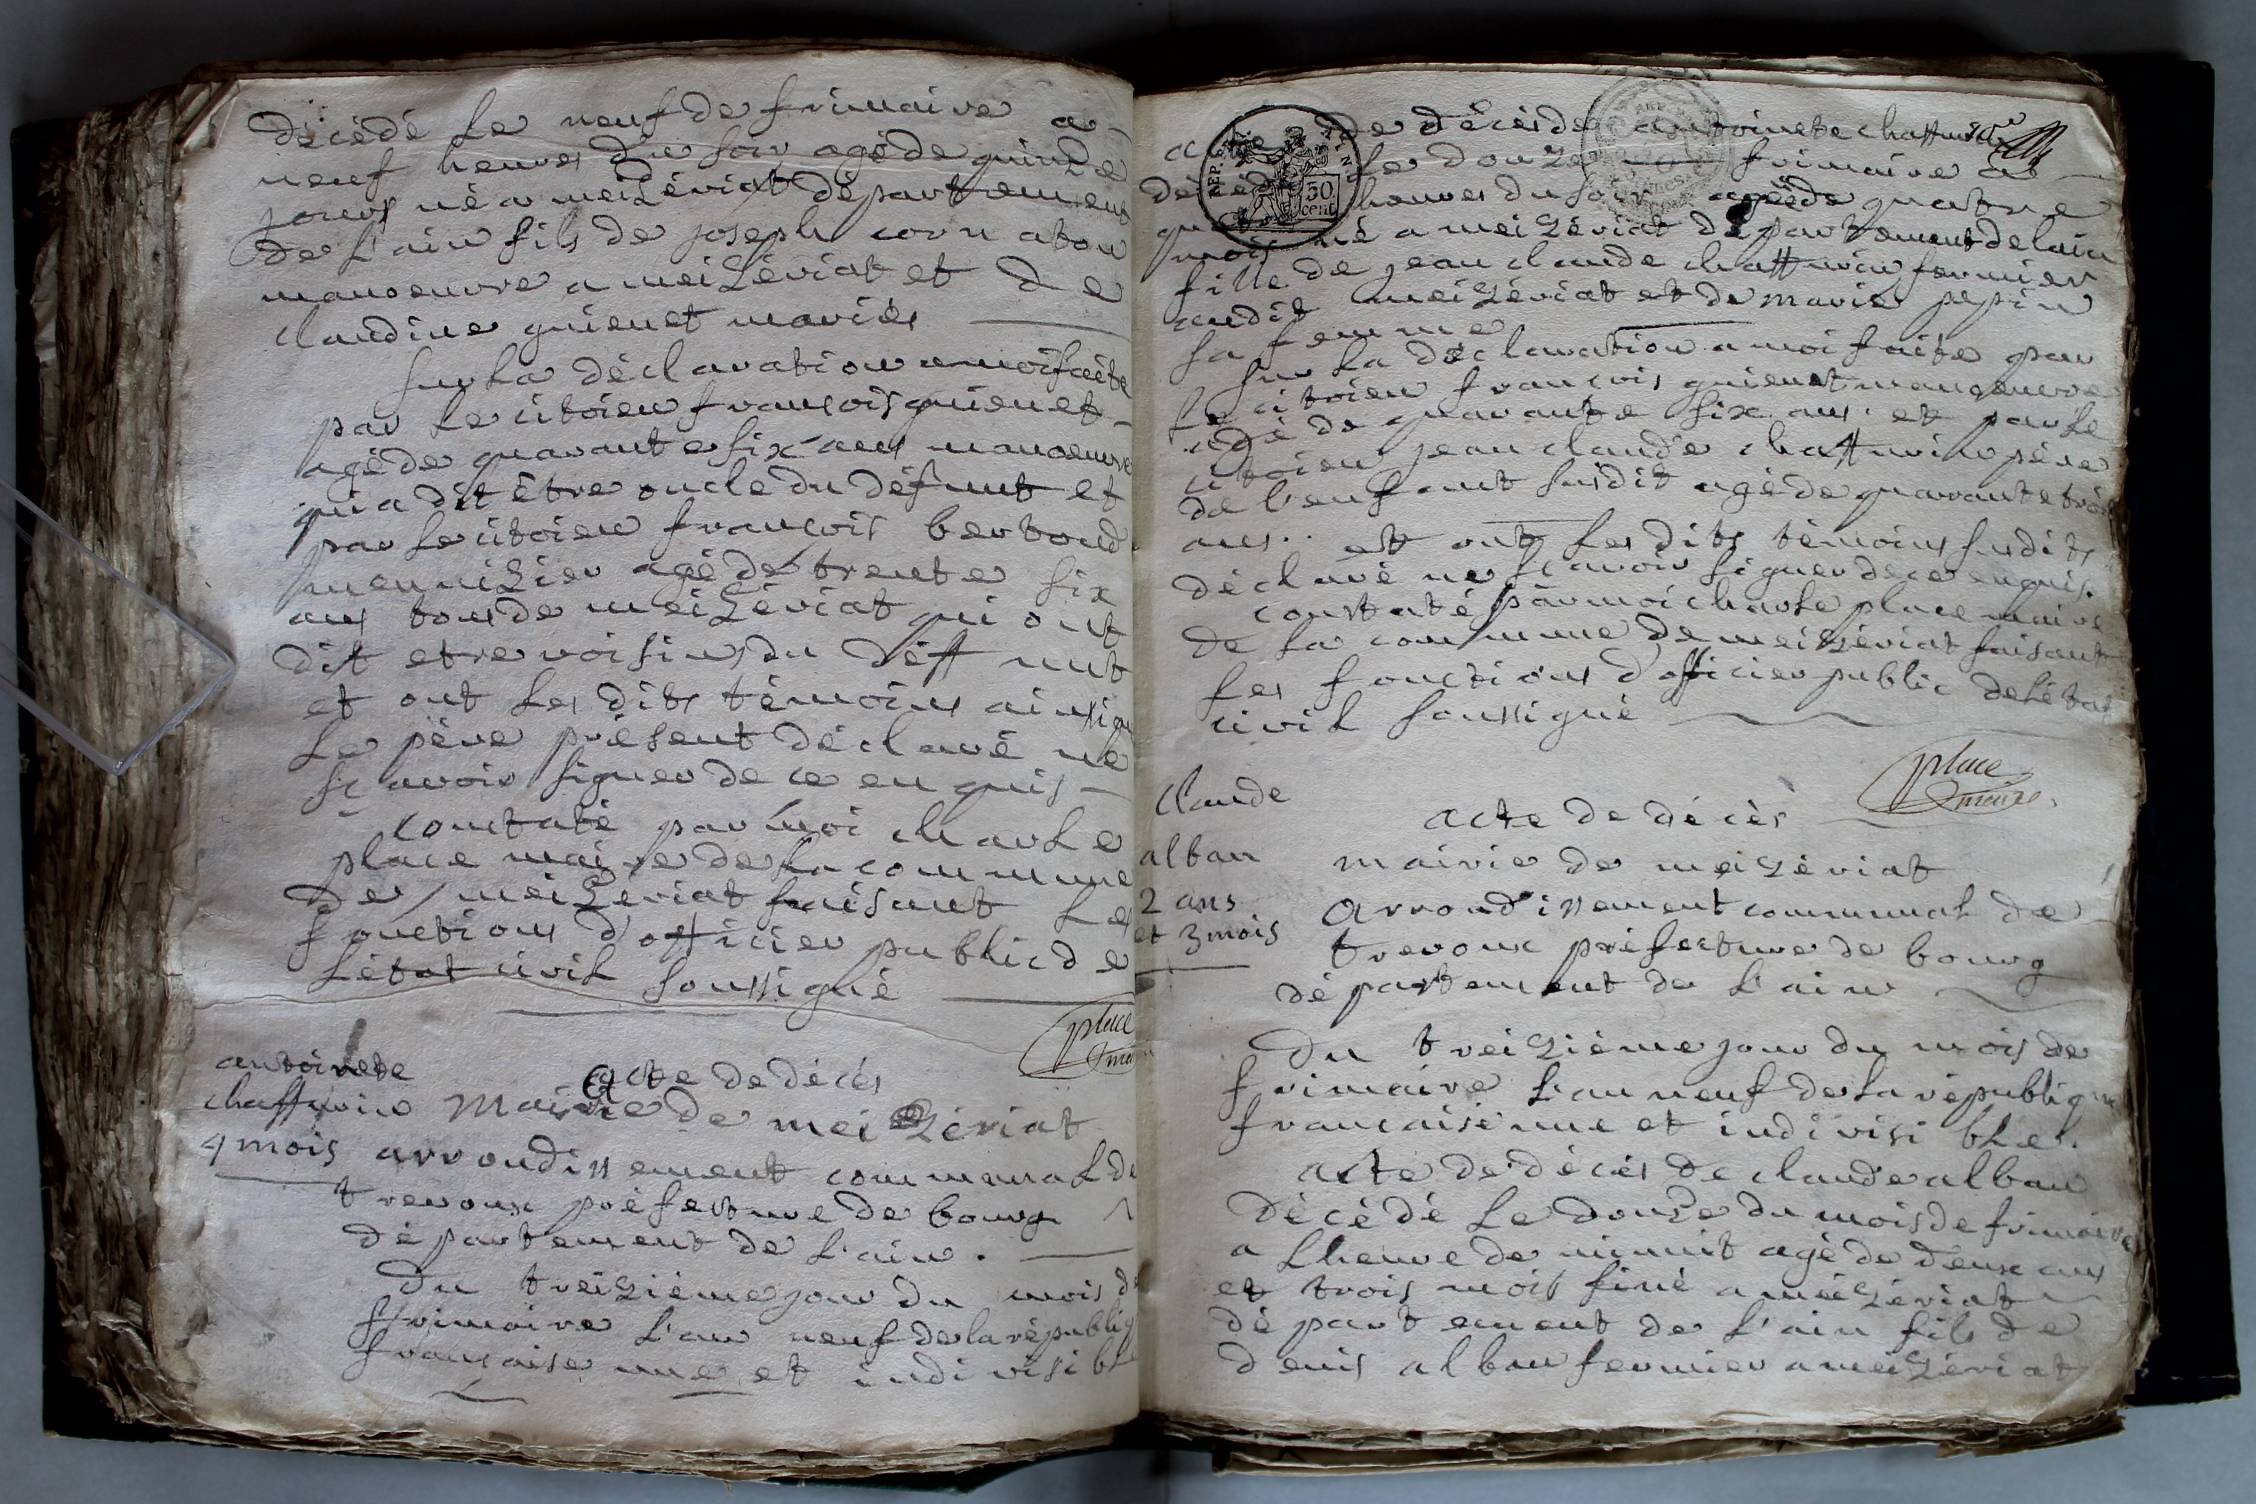 décédé le neuf de frimaire a
neuf heures du soir agé de quinze
jours né a meizériat département
de l'ain fils de joseph cornaton
manoeuvre a meizériat et de
claudine guienet mariés
sur la déclaration a moi faite
par le citoien françois guienet
agé de quarante six ans manoeuvre
qui a dit être oncle du défunt et
par le citoien françois bertoud
menuizier agé de trente six
ans tous de meizériat qui ont
dit etre voisins du déffunt
et ont les dits témoins ainsi que
le père présent déclaré ne
sçavoir signer de ce enquis
constaté par moi charle
place maire de la commune
de meizeriat faisant les
fonctions d'officier public de
l'état civil soussigné
place
maire
antoinete
chaffurin
4 mois
acte de décés
Mairie de meizériat
arrondissement communal de
trevoux préfecture de bourg
département de l'ain.
Du treizième jour du mois de
frimaire l'an neuf de la républiq
francaise une et indivisible
acte de décés de antoinete chaffurin
décédé le douze frimaire a
heures du soir agée de quatre
mois né a meizériat département de lain
fille de jean claude chaffurin fermier
audit meizériat et de marie pepin
sa femme
REP.
50
cent
sur la déclaration a moi faite par
le citoien françois guienet manoeuvre
agé de quarante six ans. et par le
citoien jean claude chaffurin père
de l'enfant susdit agé de quarante trois
ans.. et ont les dits témoins susdits
déclaré ne sçavoir signer de ce enquis.
constaté par moi charle place maire
de la commune de meizériat faisant
les fonctions d'officier public de létat
civil soussigné
place
maire
claude
alban
2 ans
et 3 mois
acte de décès
mairie de meizériat
arrondissement communal de
trevoux préfecture de bourg
département de l'ain
Du treizième jour du mois de
frimaire l'an neuf de la république
francaise une et indivisible.
acte de décés de claude alban
décédé le douze du mois de frimaire
a lheure de minuit agé de deux ans
et trois mois finé a meizériat
département de l'ain fils de
denis alban fermier a meizériat